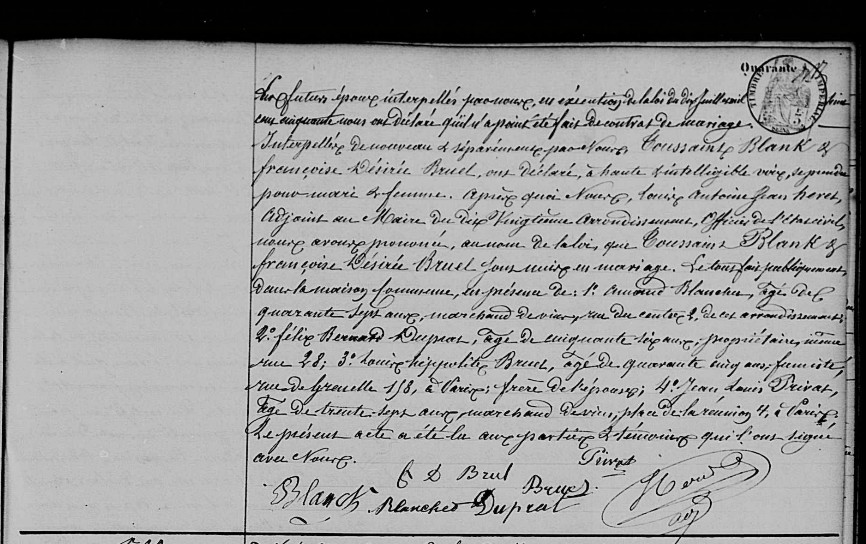 Quarante
TIMBRE IMPERIAL
Les futurs époux interpellés par nous, en exécution de la loi du dix juillet mil
cent cinquante nous ont déclaré qu'il n'a point été fait de contrat de mariage.
Interpellés de nouveau & séparément par Nous Toussaint Blank &
françoise Désirée Bruel, ont déclaré, à haute & intelligible voix, se prendre
pour mari & femme. Après quoi Nous, Louis Antoine Jean
Adjoint au Maire du Dix Vingtième Arrondissement, Officier de l'état civil,
nous avons prononcé, au nom de la loi, que Toussaint Blank &
françoise Désirée Bruel sont unis en mariage. Le tout fait publiquement
dans la maison commune, en présence de: 1º Amand Blancher, âgé de
quarante sept ans, marchand de vins, rue du centre 2, de cet arrondissement;
2º félix Bernard Duprat, âgé de cinquante six ans, propriétaire, même
rue 28; 3º Louis hippolite Bruel, âgé de quarante cinq ans, fumiste,
rue de Grenelle 158, à Paris; frère de l'épouse; 4º Jean Louis Privat,
âgé de trente-sept ans, marchand de vins, place de la réunion 4, à Paris.
Le présent acte a été lu aux parties & témoins qui l'ont signé
avec Nous.
Privat
D Bruel
Blanck Blancher Duprat Bruel